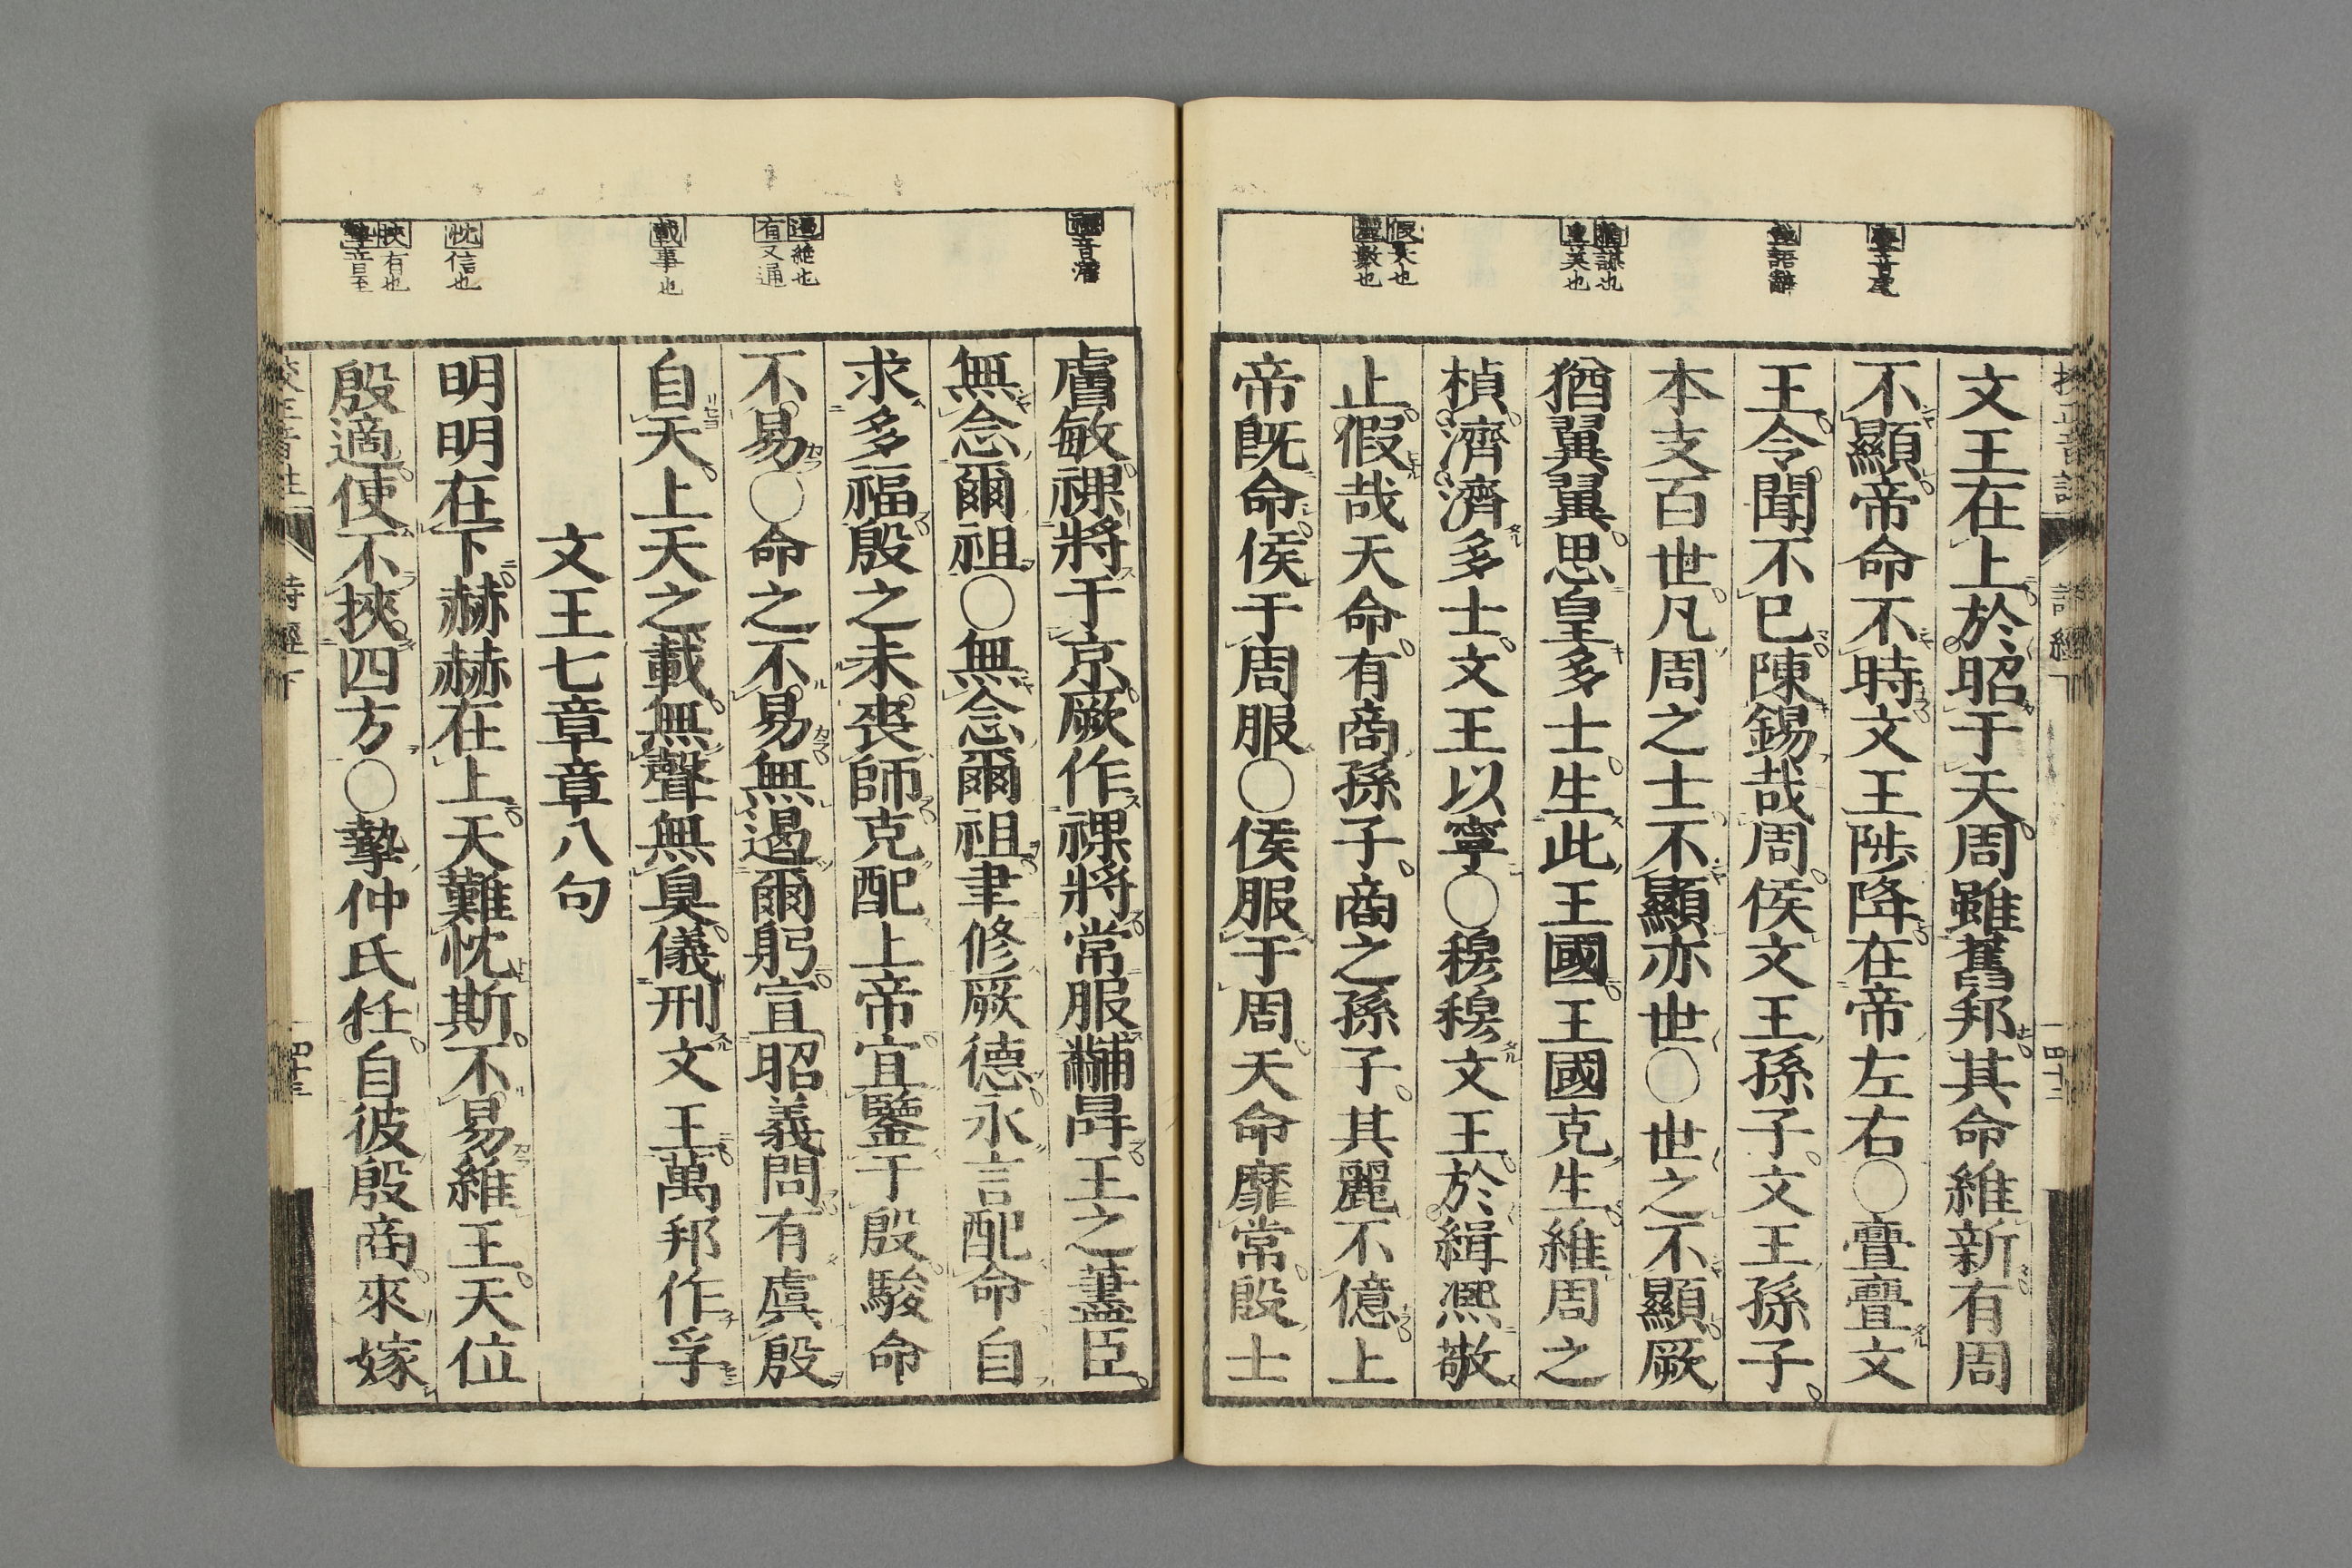 文王在上於昭于天周雖舊邦其命維新有周
不顯帝命不時文王陟降在帝左右〇亹亹文
王令聞不已陳錫哉周侯文王孫子文王孫子
本支百世凡周之士不顯亦世〇世之不顯厥
猶翼翼思皇多士生此王國王國克生維周之
楨濟濟多士文王以寧〇穆穆文王於緝熈敬
止假哉天命有商孫子商之孫子其麗不億上
帝既命侯于周服〇侯服于周天命靡常殷士
語辭
猶謀也
皇美也
假大也
麗數也
詩經下
四十二
膚敏祼將于京厥作祼將常服黼冔王之藎臣
無念爾祖〇無念爾祖聿修厥德永言配命自
求多福殷之未喪師克配上帝宜鑒于殷駿命
不易〇命之不易無遏爾躬宣昭義問有虞殷
自天上天之載無聲無臭儀刑文王萬邦作孚
文王七章章八句
明明在下赫赫在上天難忱斯不易維王天位
殷適使不挾四方〇摯仲氏任自彼殷商來嫁
遏絶也
有又通
載事也
忱信也
挾有也
摯音至
詩經下
四十三